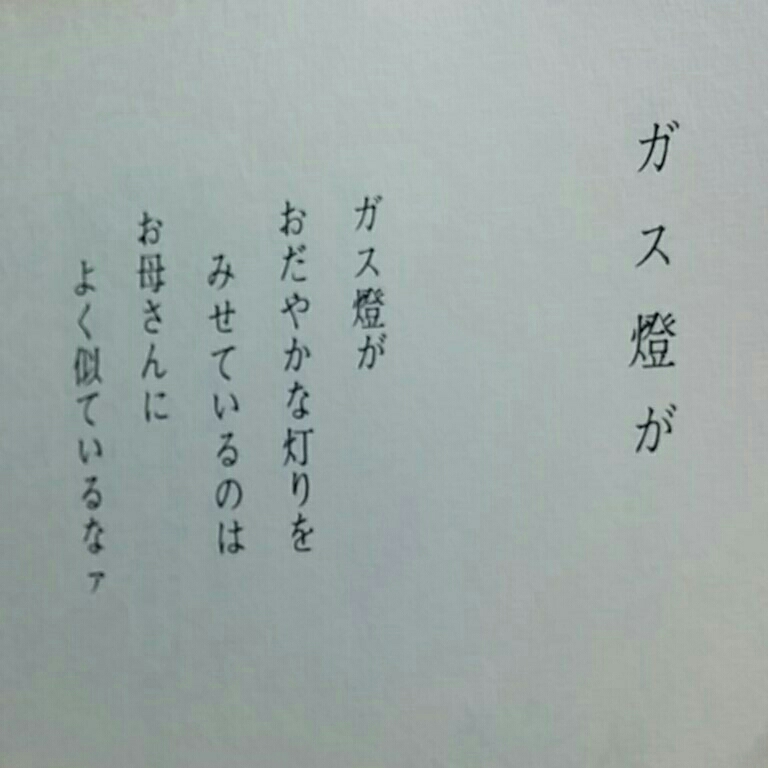 ガス燈が
ガス燈が
おだやかな灯りを
みせているのは
お母さんに
よく似ているなァ